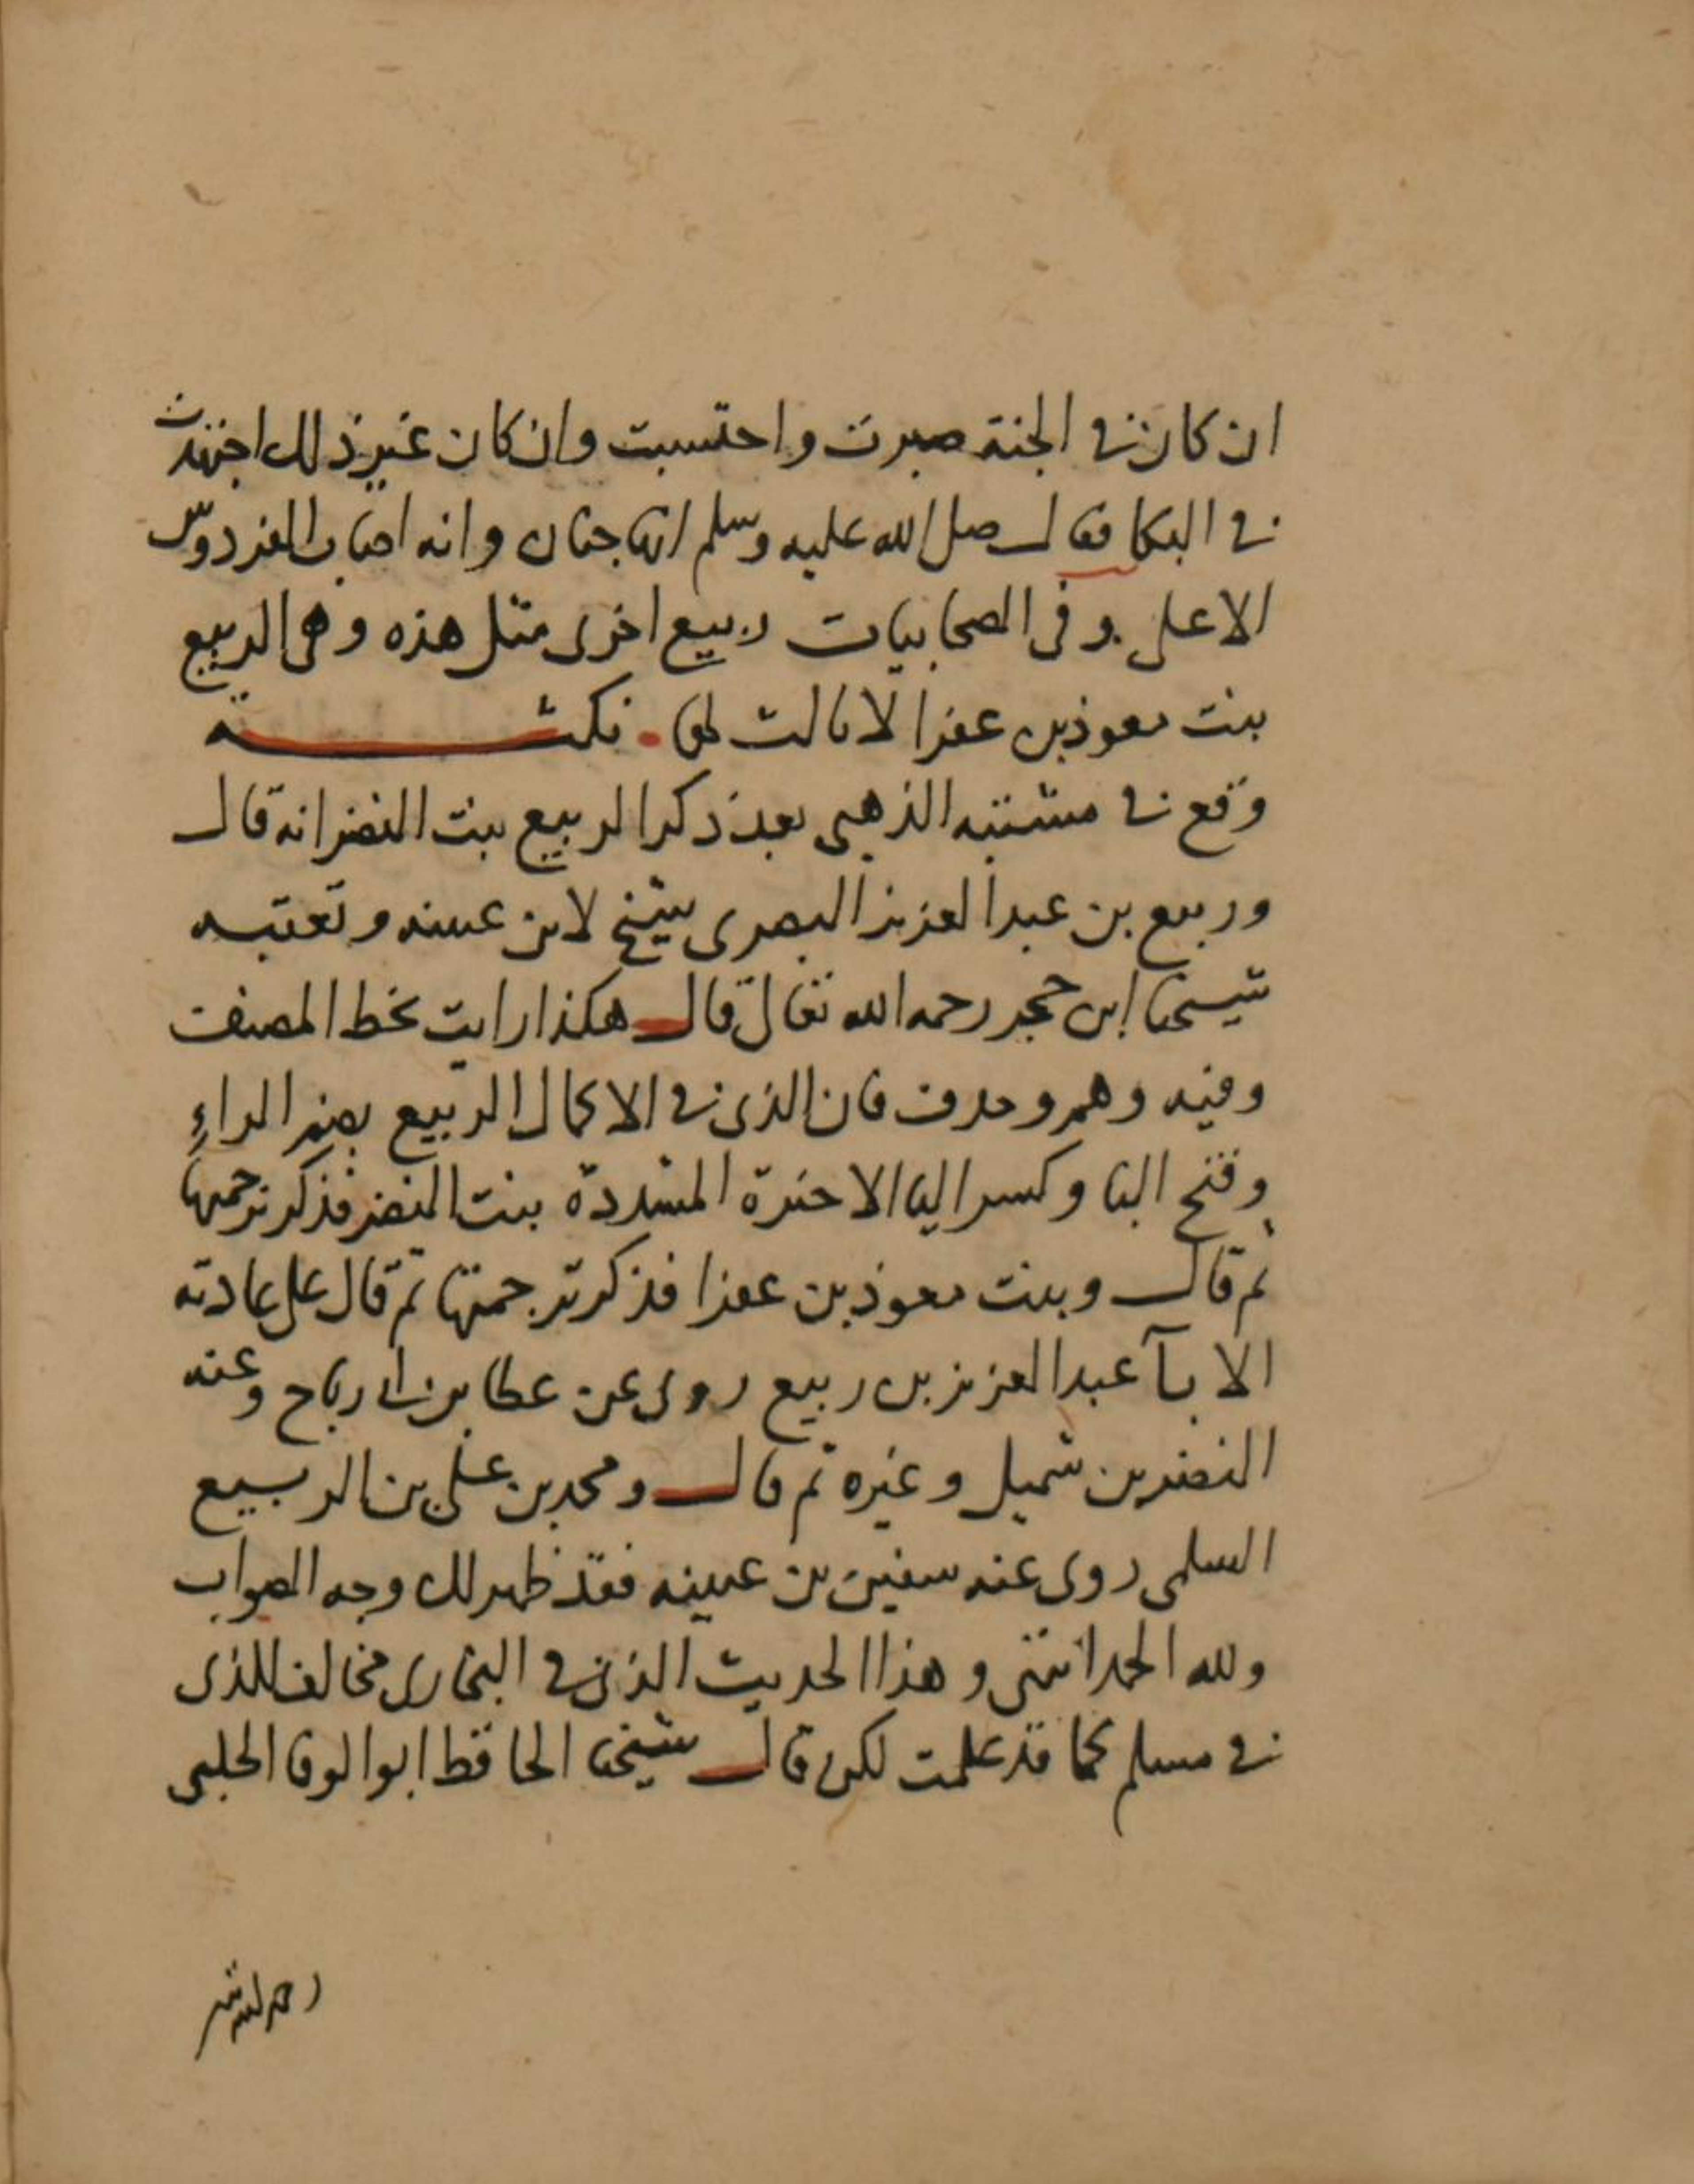 ان كان في الجنة صبرت واحتسبت وان كان غير ذلك اجتهدت
في البكا فقال صلى الله عليه وسلم انها جنان وانه اصاب الفردوس
الاعلى وفى الصحابيات ربيع اخرى مثل هذه وهى الربيع
بنت معوذ بن عفرا لا ثالث لها . نكتة
وقع في مشتبه الذهبى بعد ذكر الربيع بنت النضر انه قال
وربيع بن عبد العزيز البصرى شيخ لابن عيينه وتعقبه
شيخنا ابن حجر رحمه الله تعالى قال هكذا رايت بخط المصنف
وفيه وهم وحذف فان الذى في الاكمال الربيع بضم الراء
وفتح البا وكسر اليا الاخيرة المشددة بنت النضر فذكر ترجمتها
ثم قال وبنت معوذ بن عفرا فذكر ترجمتها ثم قال على عادته
الابآ عبد العزيز بن ربيع روى عن عطا بن ابى رباح وعنه
النضر بن شميل وغيره ثم قال ومحمد بن على بن الربيع
السلمى روى عنه سفين بن عيينه فقد ظهر لك وجه الصواب
ولله الحمد انتهى وهذا الحديث الذى في البخارى مخالف للذى
في مسلم كما قد علمت لكن قال شيخنا الحافظ ابو الوفا الحلبى
رحمه الله